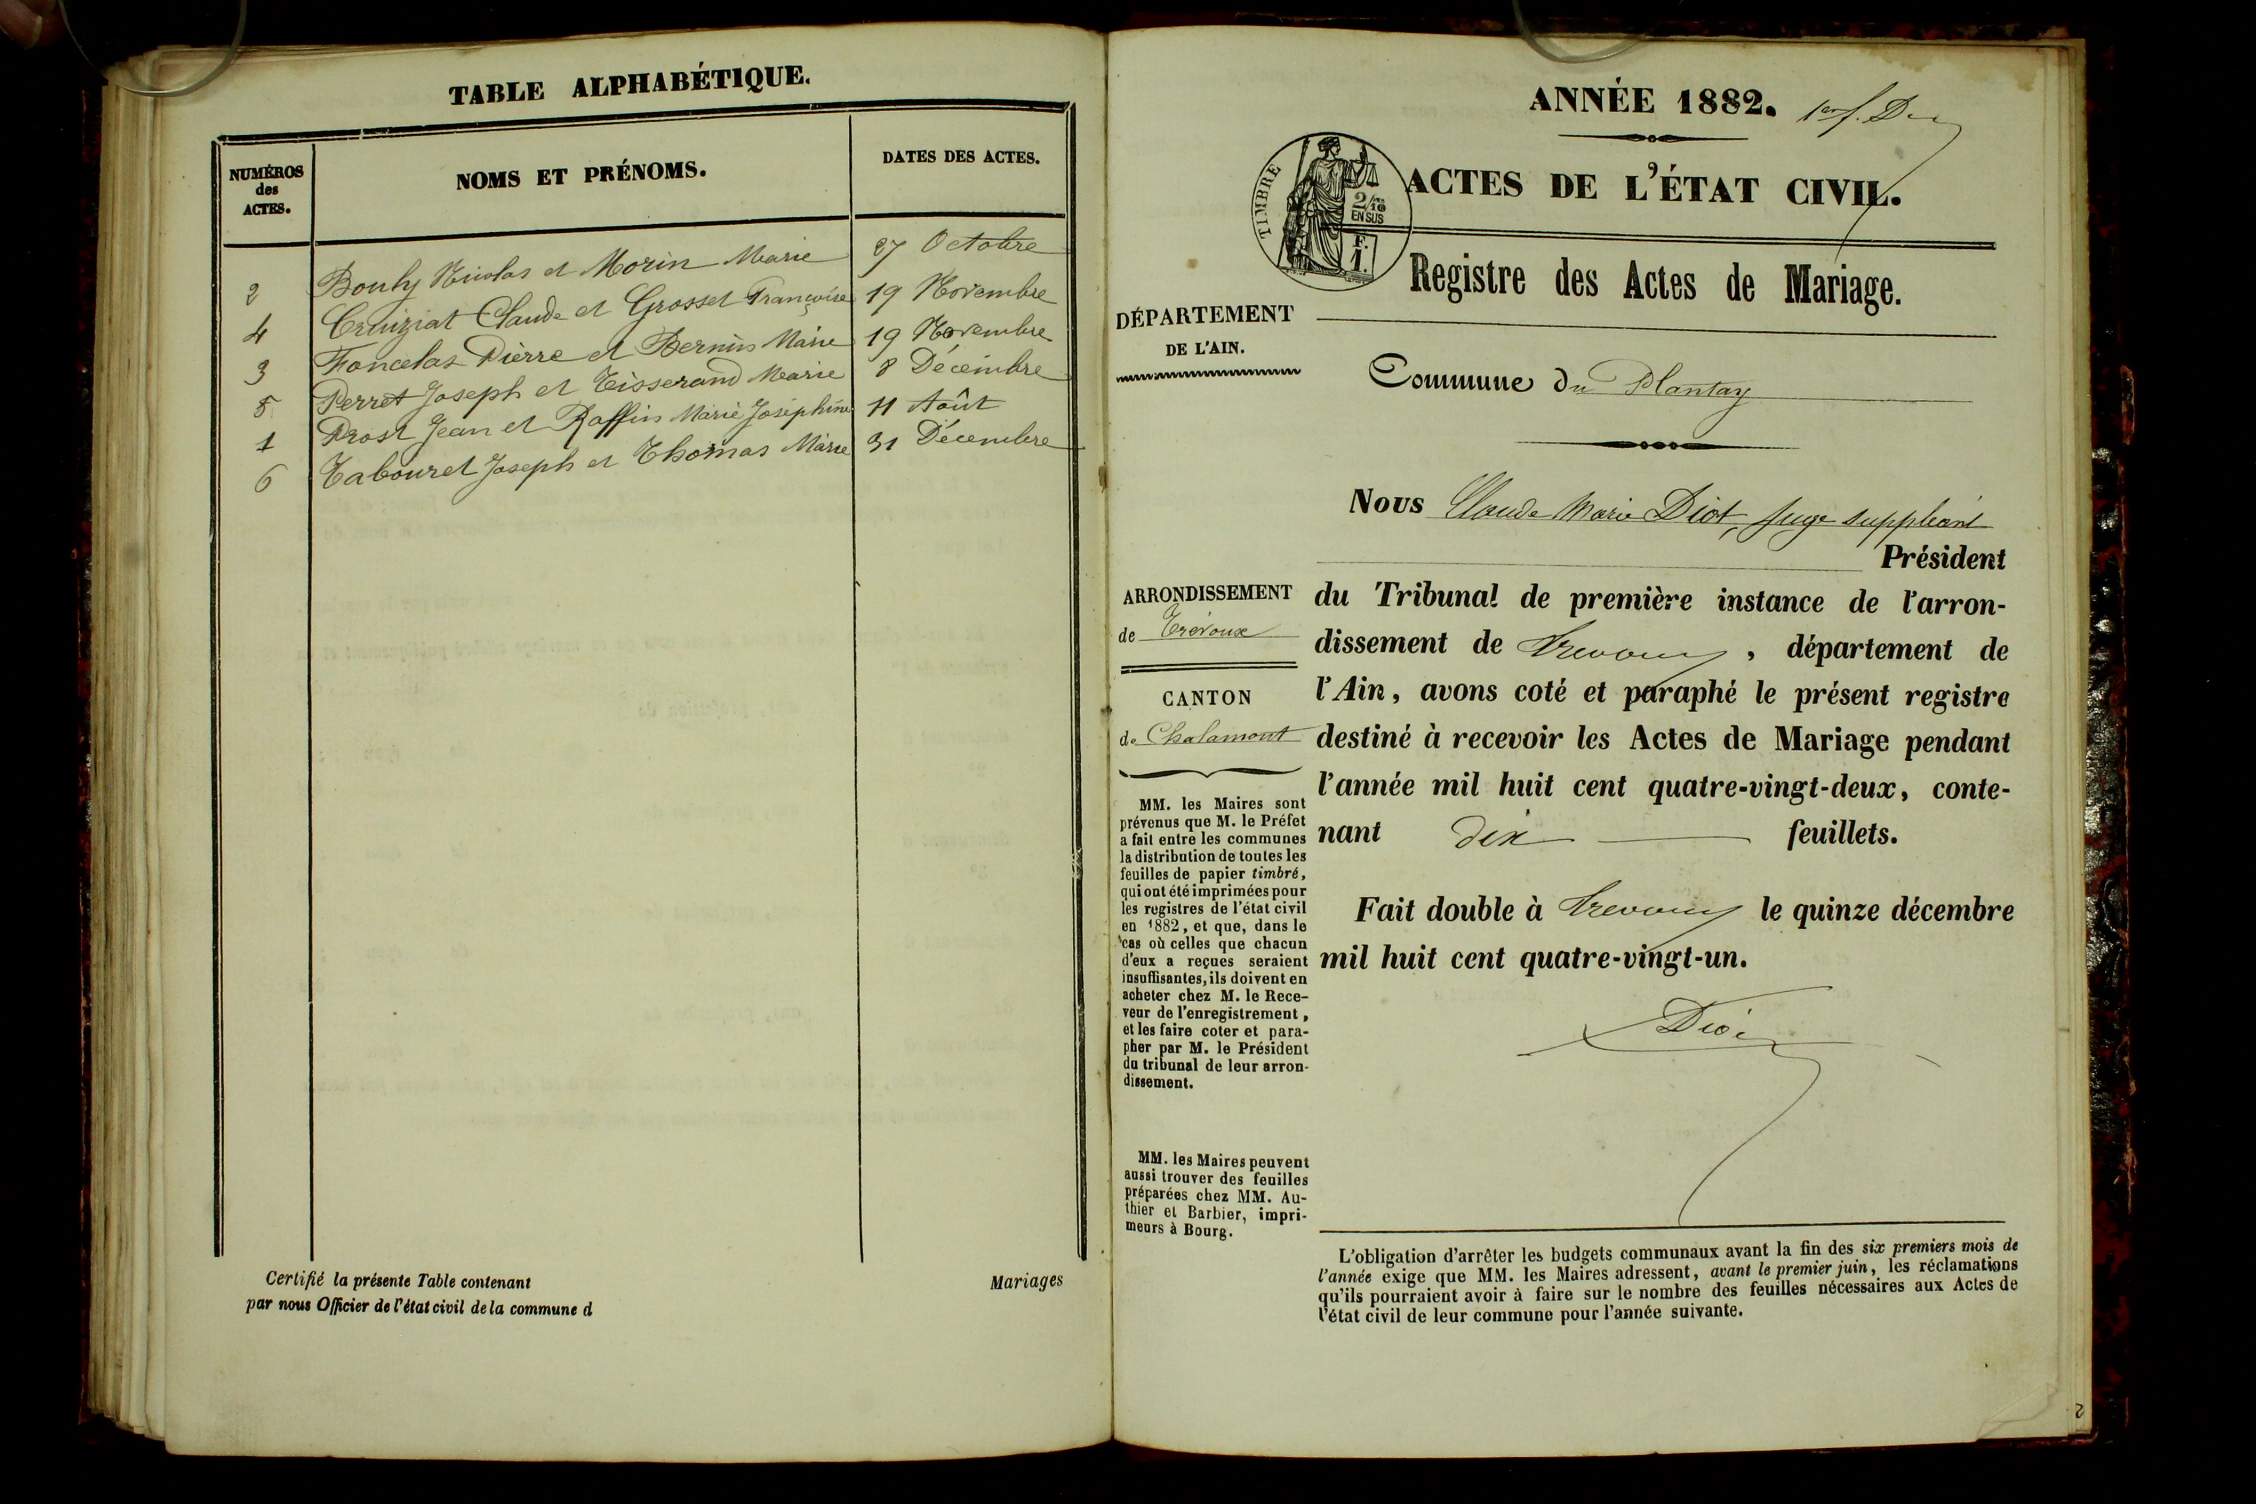 TABLE ALPHABÉTIQUE.
NUMÉROS
des
ACTES.
NOMS ET PRÉNOMS.
DATES DES ACTES.
2 Bouly Nicolas et Morin Marie 27 Octobre
4 Cruiziat Claude et Grosset Françoise 19 Novembre
3 Foncelas Pierre et Bernin Marie 19 Novembre
5 Perret Joseph et Tisserand Marie 8 Décembre
1 Prost Jean et Raffin Marie Joséphine 11 Août
6 Tabouret Joseph et Thomas Marie 31 Décembre
Certifié la présente Table contenant Mariages
par nous Officier de l'état civil de la commune d
ANNÉE 1882.
1er f.
TIMBRE
2/10
EN SUS
F.
1.
ACTES DE L'ÉTAT CIVIL.
Registre des Actes de Mariage.
DÉPARTEMENT
DE L'AIN.
Commune du Plantay
Nous Claude Marie Diot, juge suppléant
Président
du Tribunal de première instance de l'arron-
dissement de Trevoux, département de
l'Ain, avons coté et paraphé le présent registre
destiné à recevoir les Actes de Mariage pendant
l'année mil huit cent quatre-vingt-deux, conte-
nant dix feuillets.
Fait double à Trevoux le quinze décembre
mil huit cent quatre-vingt-un.
Diot
ARRONDISSEMENT
de Trévoux
CANTON
de Chalamont
MM. les Maires sont
prévenus que M. le Préfet
a fait entre les communes
la distribution de toutes les
feuilles de papier timbré,
qui ont été imprimées pour
les registres de l'état civil
en 1882, et que, dans le
cas où celles que chacun
d'eux a reçues seraient
insuffisantes, ils doivent en
acheter chez M. le Rece-
veur de l'enregistrement,
et les faire coter et para-
pher par M. le Président
du tribunal de leur arron-
dissement.
MM. les Maires peuvent
aussi trouver des feuilles
préparées chez MM. Au-
thier et Barbier, impri-
meurs à Bourg.
L'obligation d'arrêter les budgets communaux avant la fin des six premiers mois de
l'année exige que MM. les Maires adressent, avant le premier juin, les réclamations
qu'ils pourraient avoir à faire sur le nombre des feuilles nécessaires aux Actes de
l'état civil de leur commune pour l'année suivante.